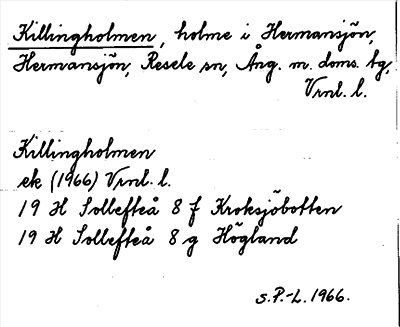 Killingholmen, holme i Hermansjön,
Hermansjön, Resele sn, Ång. m. doms. tg,
Vrnl. l.
Killingholmen
ek (1966) Vrnl. l.
19 H Sollefteå 8 f Kroksjöbotten
19 H Sollefteå 8 g Högland
s.P.-L. 1966.